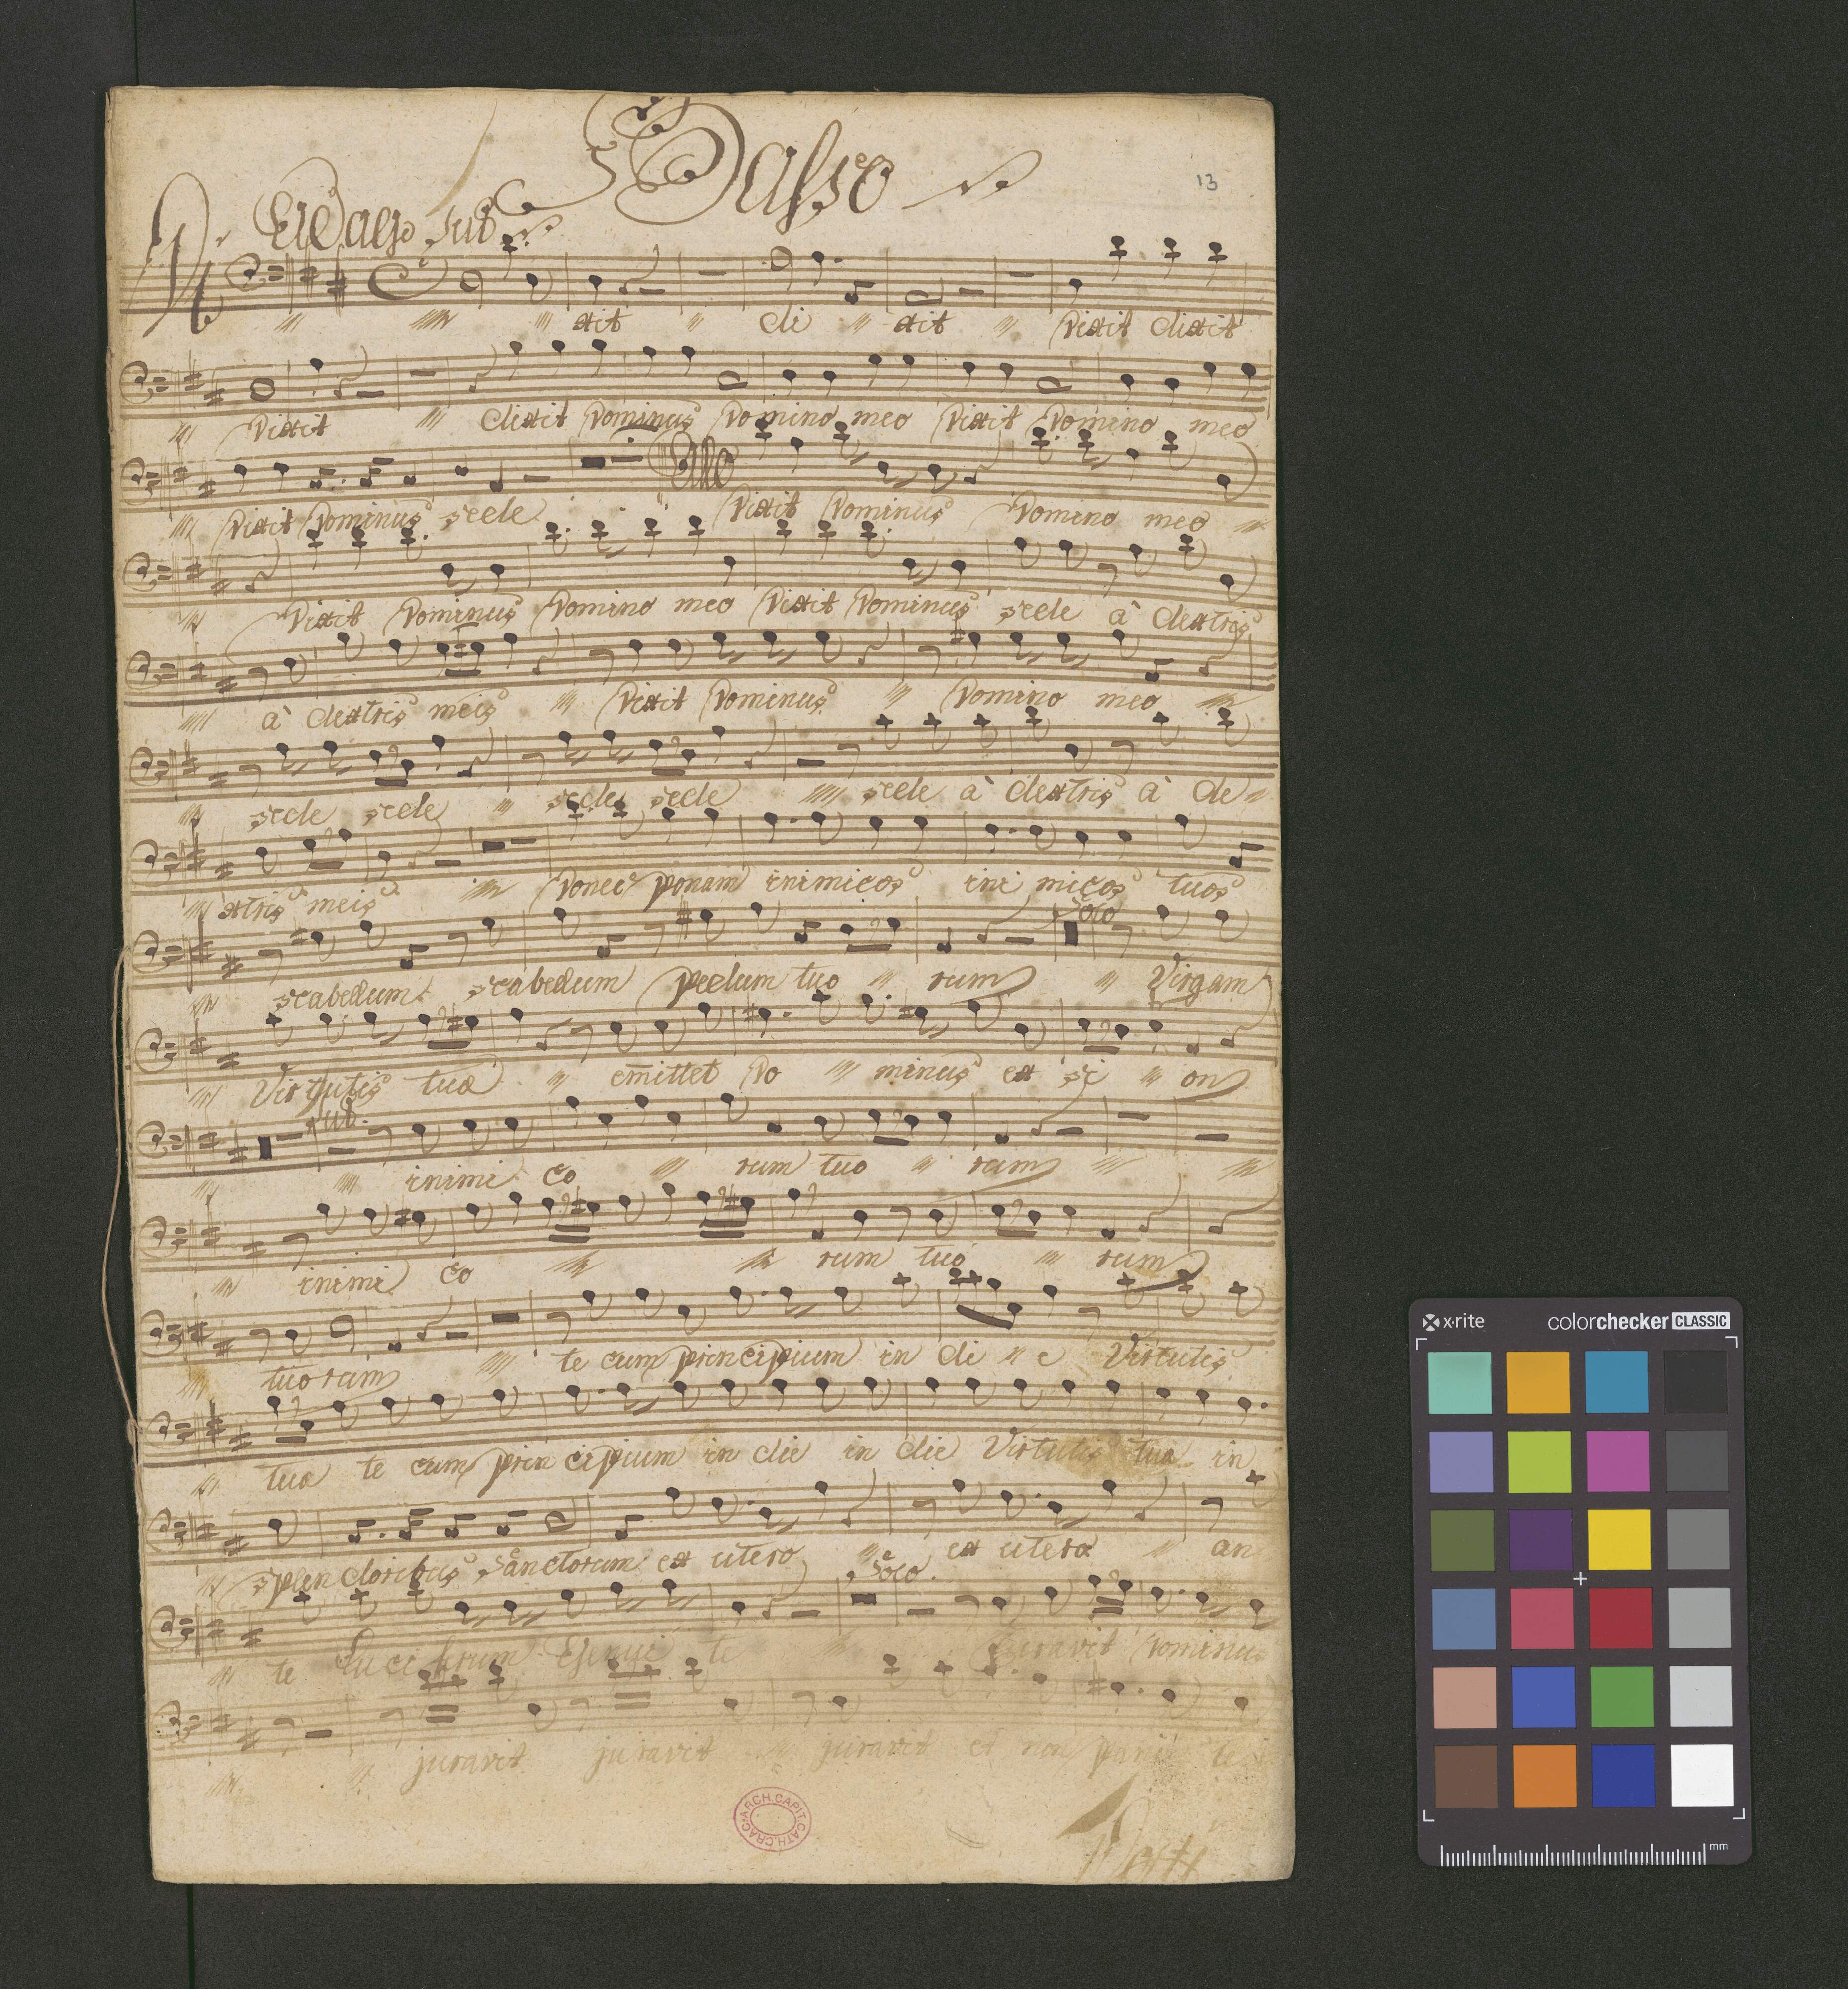 Basso
13
Adagio Tut
dit di xit Dixit dixit
Dixit dixit Dominus Domino meo Dixit Domino meo
Dixit Dominus sede Allo Dixit Dominus Domino meo
Dixit Dominus Domino meo Dixit Dominus sede à dextris
à dextris meis Dixit Dominus Domino meo
sede sede sede sede sede à dextris à de
xtris meis Donec ponam inimicos ini micos tuos
Solo
scabellum scabellum pedum tuo rum Virgam
Virtutis tuæ emittet Do minus ex Si on
Tut.
inimi co rum tuo rum
inimi co rum tuo rum
tuorum te cum principium in di e Virtutis
tuæ te cum prin cipium in die in die Virtutis tuæ in
splendoribus Sanctorum ex utero ex utero an
Solo.
te Luci ferum genui te Juravit Dominus
juravit juravit juravit et non pœni te
ARCH.CAPIT.CATH.CRAC.
x·rite colorchecker CLASSIC
mm